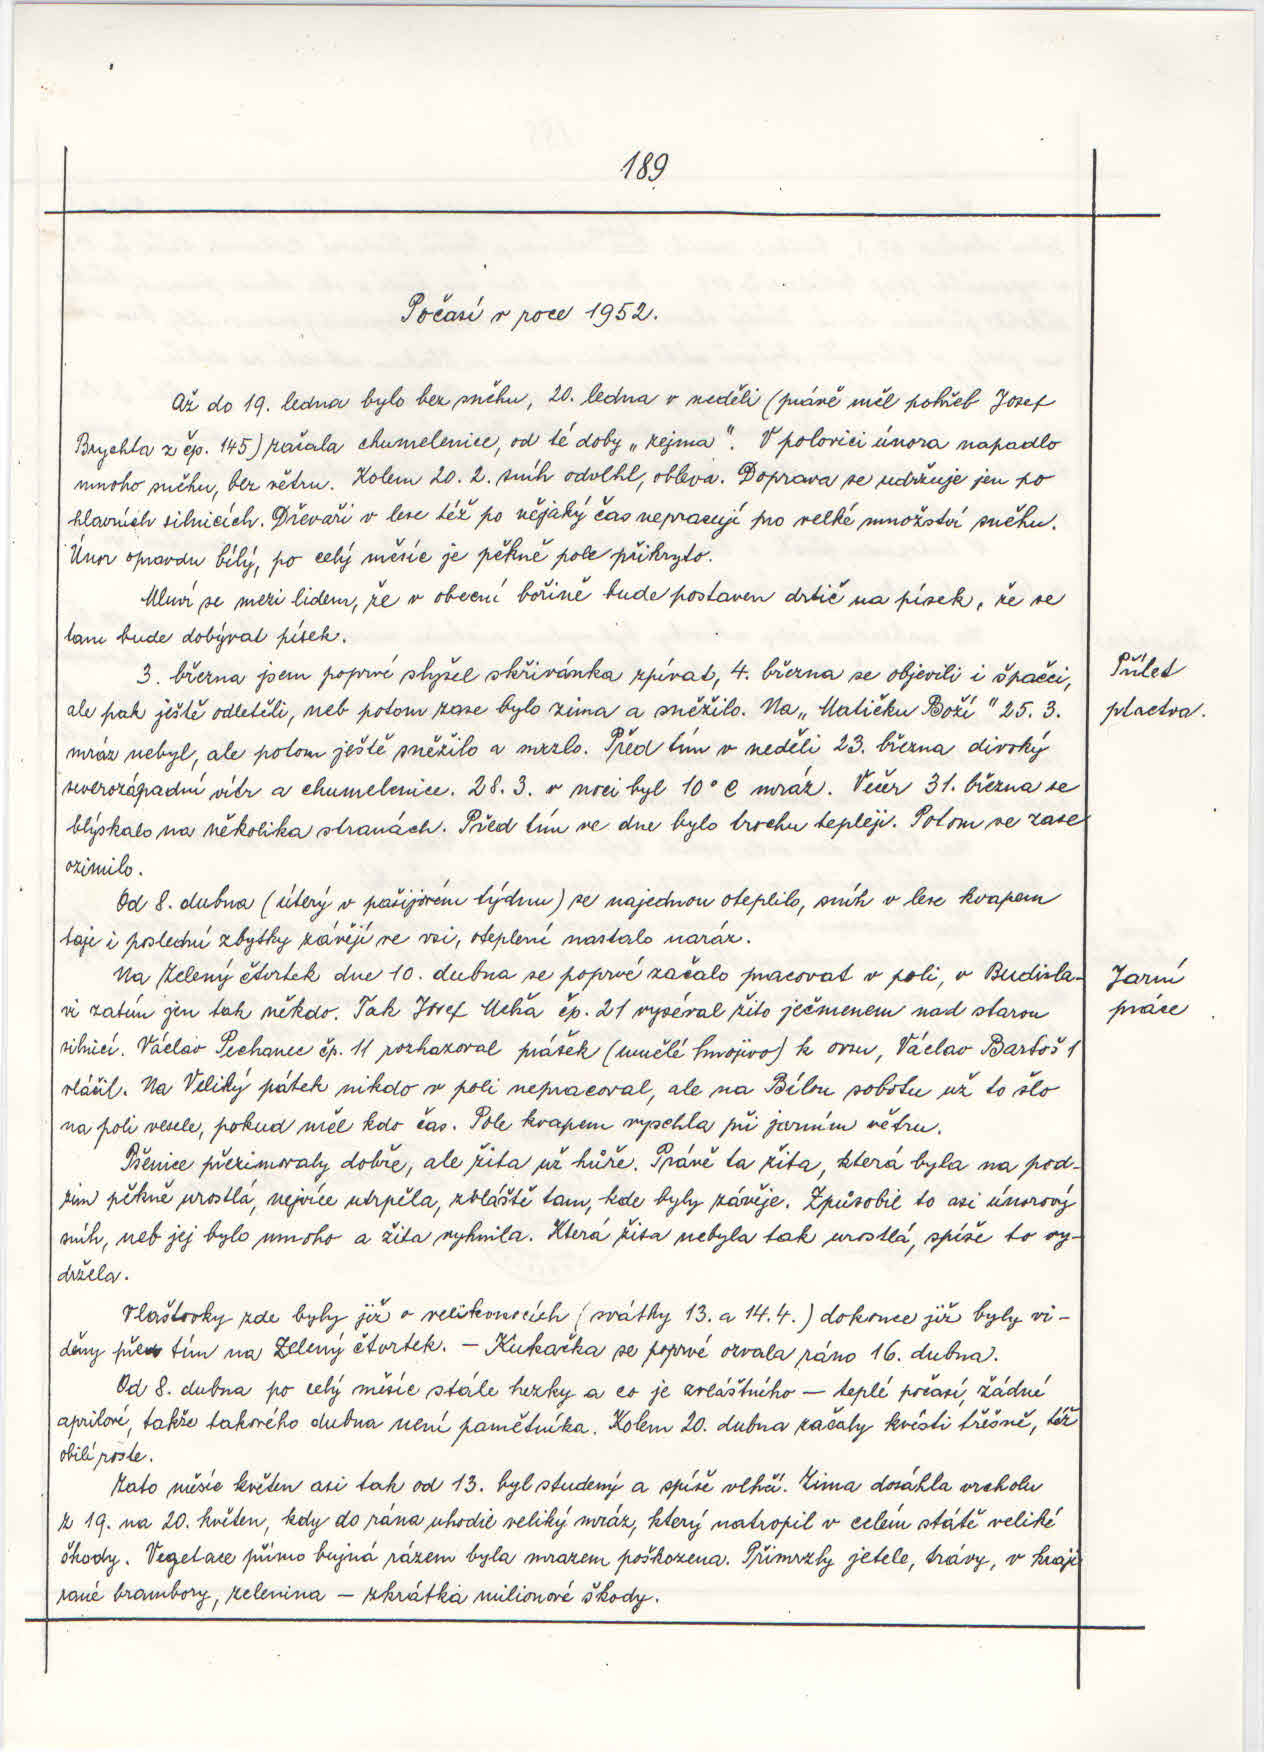 189
Počasí v roce 1952.
Až do 19. ledna bylo bez sněhu, 20. ledna v neděli (právě měl pohřeb Josef
Brychta z čp. 145) začala chumelenice, od té doby „zejma". V polovici února napadlo
mnoho sněhu, bez větru. Kolem 20. 2. sníh odvlhl, obleva. Doprava se udržuje jen po
hlavních silnicích. Dřevaři v lese též po nějaký čas nepracují pro velké množství sněhu.
Únor opravdu bílý, po celý měsíc je pěkně pole přikryto.
Mluví se mezi lidem, že v obecní bořině bude postaven drtič na písek, že se
tam bude dobývat písek.
3. března jsem poprvé slyšel skřivánka zpívat, 4. března se objevili i špačci,
Přílet
ale pak ještě odletěli, neb potom zase bylo zima a sněžilo. Na „Matičku Boží" 25. 3.
ptactva.
mráz nebyl, ale potom ještě sněžilo a mrzlo. Před tím v neděli 23. března divoký
severozápadní vítr a chumelenice. 28. 3. v noci byl 10° C mráz. Večer 31. března se
blýskalo na několika stranách. Před tím ve dne bylo trochu tepleji. Potom se zase
ozimilo.
Od 8. dubna (úterý v pašijovém týdnu) se najednou oteplilo, sníh v lese kvapem
taje i poslední zbytky závějí ve vsi, oteplení nastalo naráz.
Na Zelený čtvrtek dne 10. dubna se poprvé začalo pracovat v poli, v Budisla-
Jarní
vi zatím jen tak někdo. Tak Josef Mcha čp. 21 vyséval žito ječmenem nad starou
práce
silnicí. Václav Pechanec čp. 11 rozhazoval prášek (umělé hnojivo) k ovsu, Václav Bartoš 1
vláčil. Na Veliký pátek nikdo v poli nepracoval, ale na Bílou sobotu už to šlo
na poli vesele, pokud měl kdo čas. Pole kvapem vyschla při jarním větru.
Pšenice přezimovaly dobře, ale žita už hůře. Právě ta žita, která byla na pod-
zim pěkně urostlá, nejvíce utrpěla, zvláště tam, kde byly závěje. Způsobil to asi únorový
sníh, neb jej bylo mnoho a žita vyhnila. Která žita nebyla tak urostlá, spíše to vy-
držela.
Vlaštovky zde byly již o velikonocích (svátky 13. a 14. 4.) dokonce již byly vi-
děny před tím na Zelený čtvrtek. — Kukačka se poprvé ozvala ráno 16. dubna.
Od 8. dubna po celý měsíc stále hezky a co je zvláštního — teplé počasí, žádné
aprilové, takže takového dubna není pamětníka. Kolem 20. dubna začaly kvésti třešně, též
obilí roste.
Zato měsíc květen asi tak od 13. byl studený a spíše vlhčí. Zima dosáhla vrcholu
z 19. na 20. květen, kdy do rána uhodil veliký mráz, který natropil v celém státě veliké
škody. Vegetace přímo bujná rázem byla mrazem poškozena. Přimrzly jetele, trávy, v kraji
rané brambory, zelenina — zkrátka milionové škody.